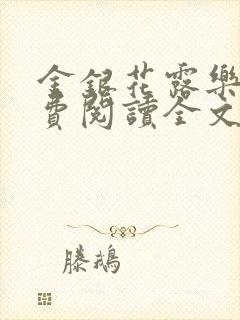 金銀花露樂
費閱讀全文
滕鵝